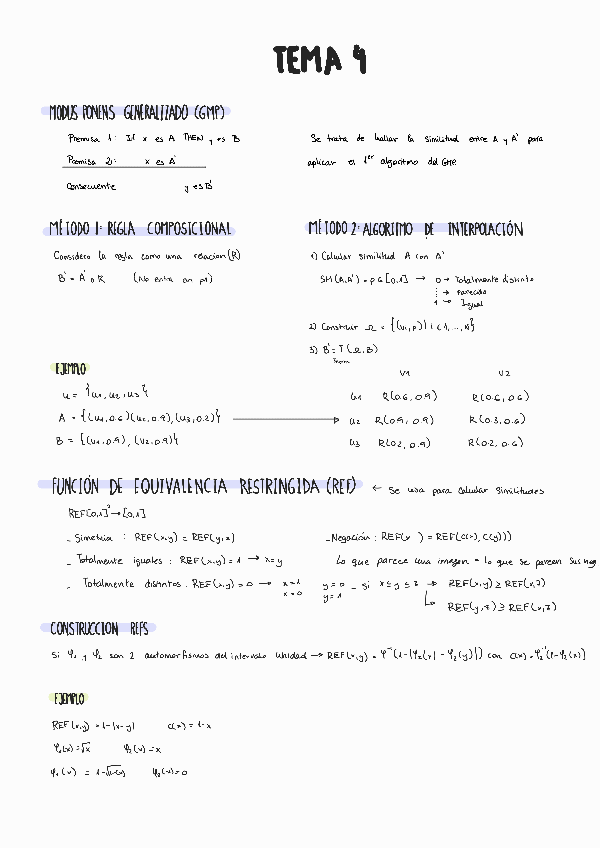 TEMA 4
MODUS PONENS GENERALIZADO (GMP)
Premisa 1: If x es A THEN y es B
Premisa 2: x es A'
Consecuente y es B'
Se trata de hallar la similitud entre A y A' para
aplicar el 1er algoritmo del GMP
MÉTODO 1: REGLA COMPOSICIONAL
Considero la regla como una relación (R)
B' = A' o R (No entra en p1)
MÉTODO 2: ALGORITMO DE INTERPOLACIÓN
1) Calcular similitud A con A'
SM(A,A') = p ∈ [0,1] → 0 → Totalmente distinto
→ Parecido
1 → Igual
2) Construir Ω = {(ui,p) | i ∈ 1,...,n}
3) B' = T(Ω,B)
EJEMPLO
u = {u1, u2, u3}
A = {(u1,0.6)(u2,0.9),(u3,0.2)}
B = {(v1,0.9), (v2,0.9)}
V1 V2
u1 R(0.6, 0.9) R(0.6, 0.6)
u2 R(0.9, 0.9) R(0.3, 0.6)
u3 R(0.2, 0.9) R(0.2, 0.6)
FUNCIÓN DE EQUIVALENCIA RESTRINGIDA (REF) ← Se usa para calcular similitudes
REF[0,1]² → [0,1]
- Simetría : REF(x,y) = REF(y,x)
- Totalmente iguales : REF(x,y) = 1 → x=y
- Totalmente distintos : REF(x,y) = 0 → x=1 y=0
x=0 y=1
- Negación : REF(x ) = REF(c(x), c(y)))
Lo que parece una imagen = lo que se parecen sus neg
- si x ≤ y ≤ z → REF(x,y) ≥ REF(x,z)
REF(y,z) ≥ REF(x,z)
CONSTRUCCION REFS
Si φ1 y φ2 son 2 automorfismos del intervalo unidad → REF(x,y) = φ1⁻¹(1-|φ2(x) - φ2(y)|) con c(x) = φ2⁻¹(1-φ2(x))
EJEMPLO
REF(x,y) = 1-|x-y| c(x) = 1-x
φ1(x) = √x φ2(x) = x